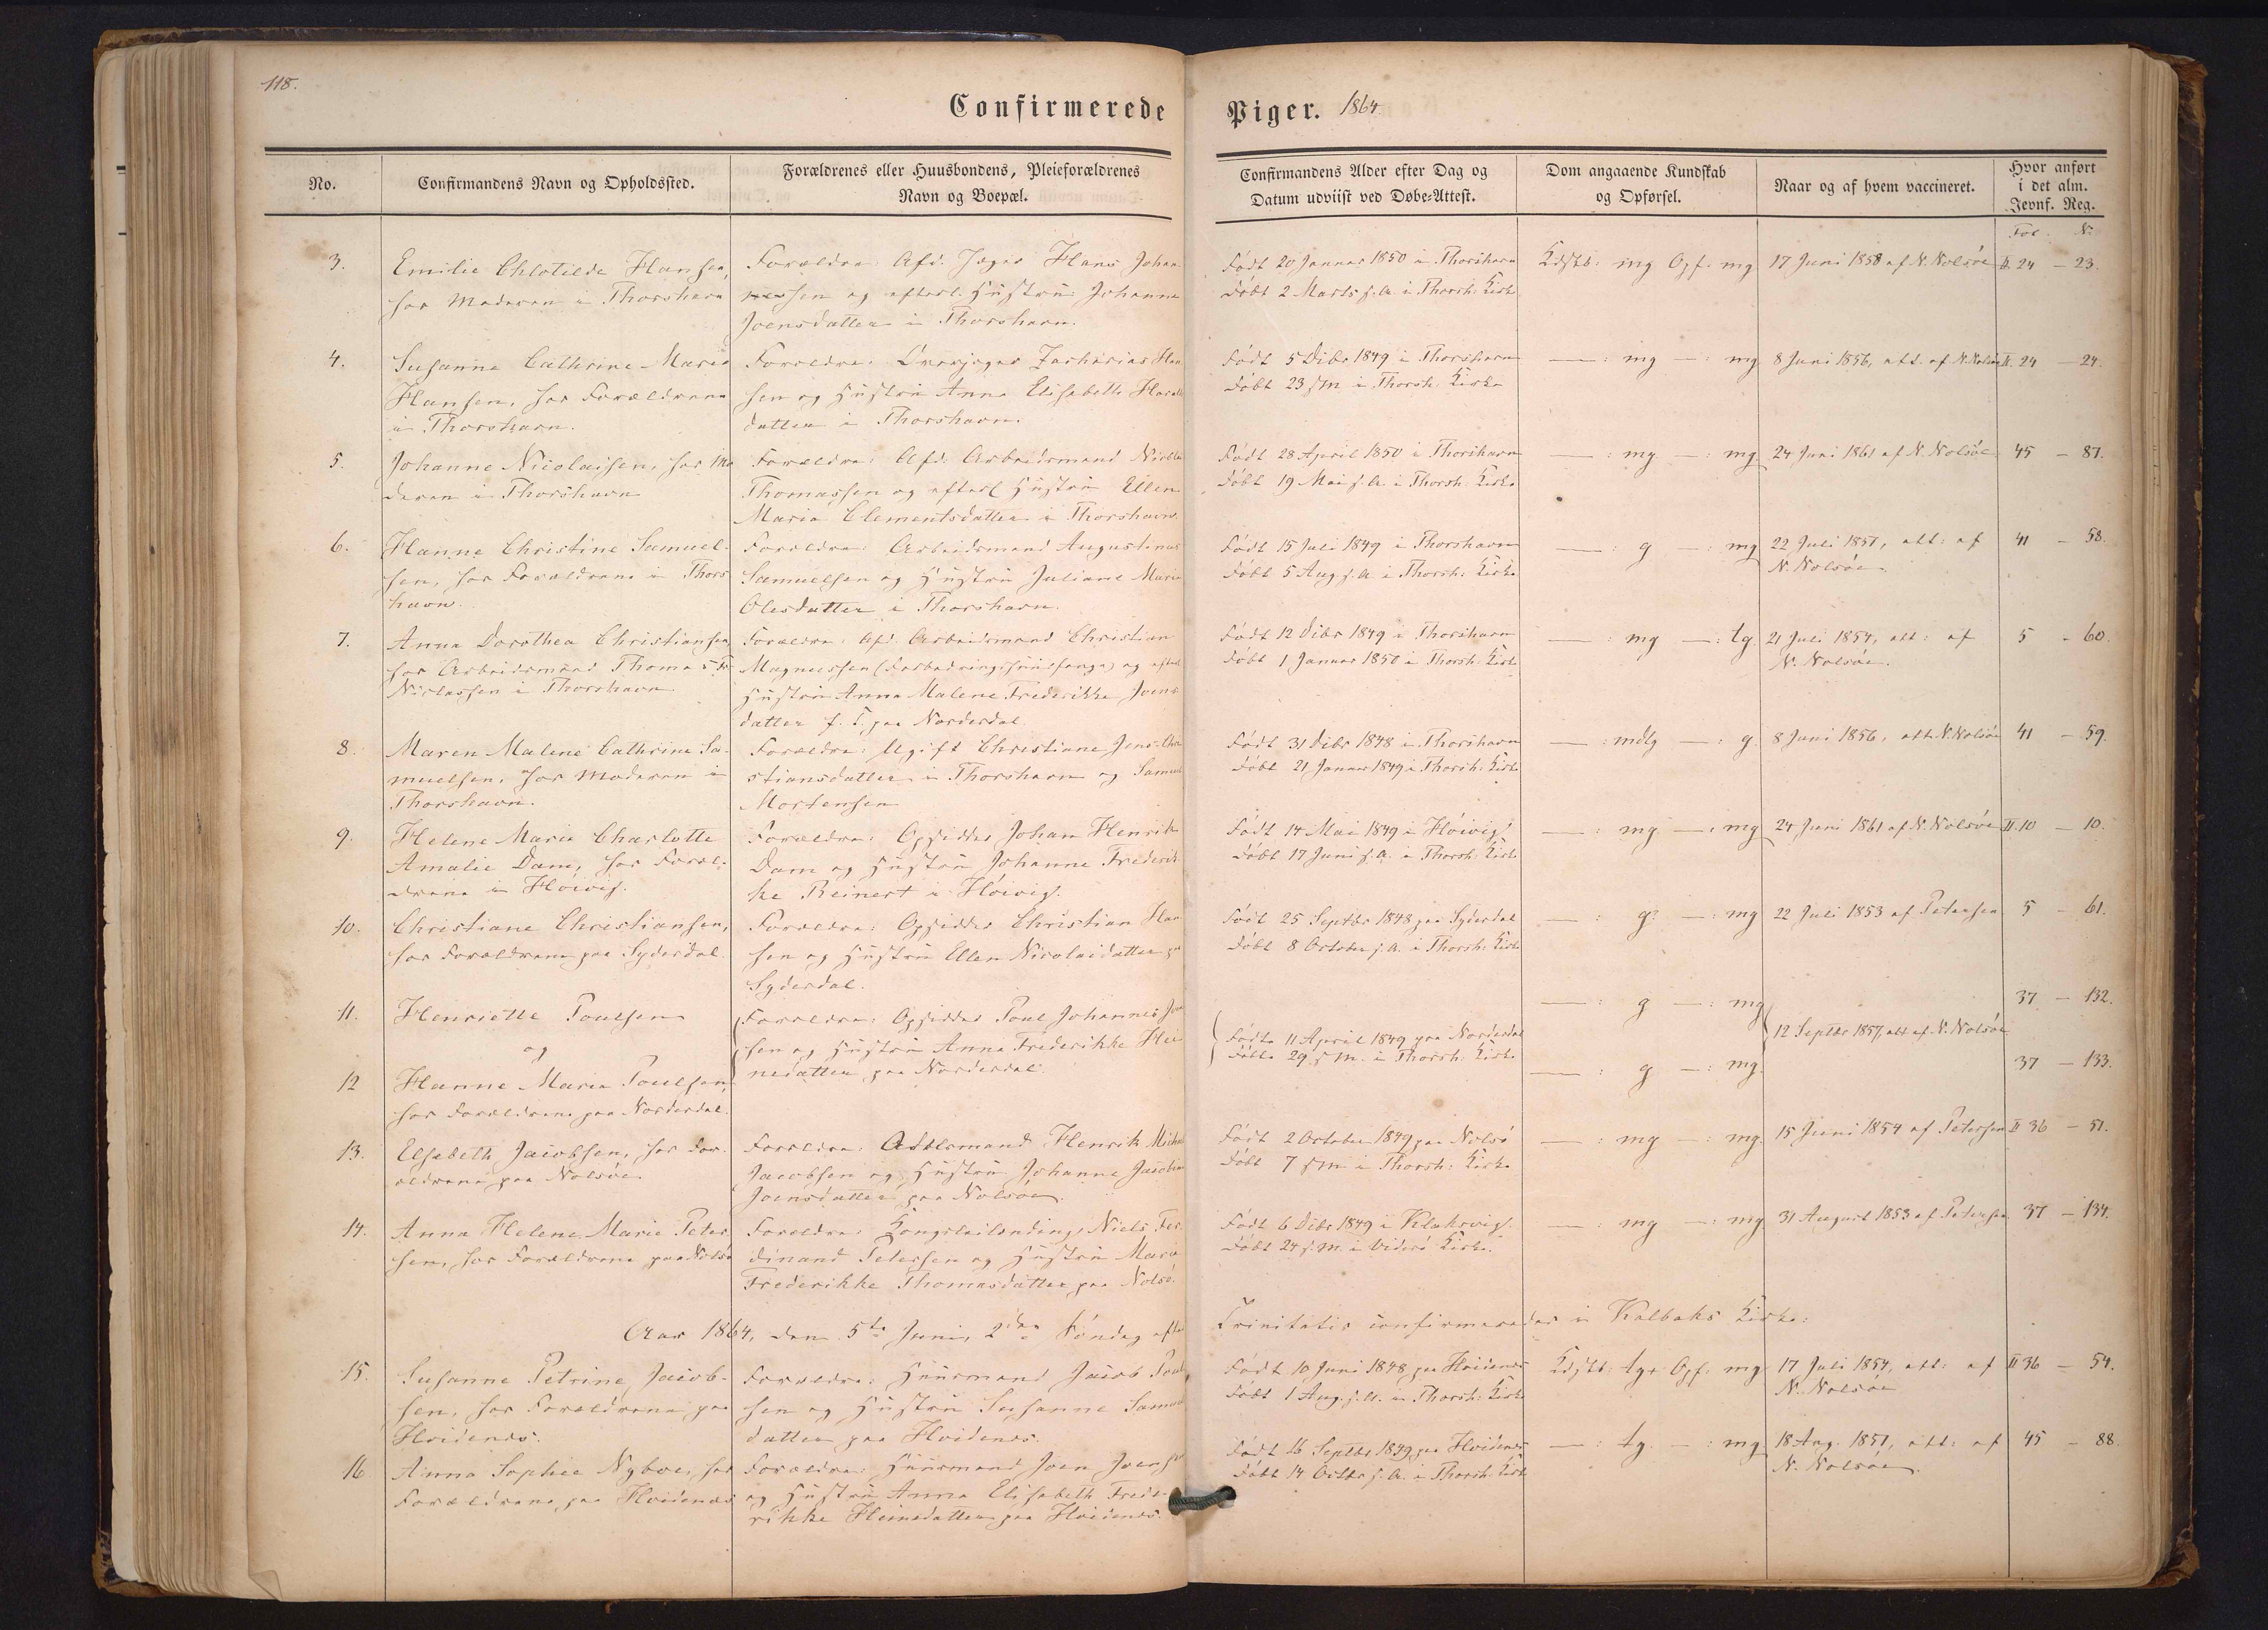 118.
Confirmerede Piger. 1864
No.
Confirmandens Navn og Opholdssted.
Forældrenes eller Huusbondens, Pleieforældrenes
Navn og Boepæl.
Confirmandens Alder efter Dag og
Datum udviist ved Døbe-Attest.
Dom angaaende Kundskab
og Opførsel.
Naar og af hvem vaccineret.
Hvor anført
i det alm.
Jevnf. Reg.
Fol. N.
3.
Emilie Chlotilde Hansen,
hos Moderen i Thorshavn
Forældre: Afd. Jæger Hans Johan-
sen og efterl. Hustru Johanne
Joensdatter i Thorshavn.
Født 20 Januar 1850 i Thorshavn
Døbt 2 Marts s. A. i Thorsh. Kirke
Kdskb: mg Opf: mg
17 Juni 1858 af N. Nolsöe
II. 24 – 23.
4.
Susanne Cathrine Maria
Hansen, hos Forældrene
i Thorshavn.
Forældre: Zacharias Han-
sen og Hustru Anna Elisabeth
datter i Thorshavn.
Født 5 Dcbr 1849 i Thorshavn
Døbt 23 s. M. i Thorsh. Kirke
— : mg — : mg
8 Juni 1856, att. af N. Nolsöe
II. 24 – 24.
5.
Johanne Nicolaisen, hos Mo-
deren i Thorshavn
Forældre: Afd. Arbeidsmand
Thomassen og efterl. Hustru Ellen
Maria Clementsdatter i Thorshavn.
Født 28 April 1850 i Thorshavn
Døbt 19 Mai s. A. i Thorsh. Kirke
— : mg — : mg
24 Juni 1861 af N. Nolsöe
45 – 87.
6.
Hanne Christine Samuel-
sen, hos Forældrene i Thors-
havn.
Forældre: Arbeidsmand Augustinus
Samuelsen og Hustru Juliane Marie
Olesdatter i Thorshavn.
Født 15 Juli 1849 i Thorshavn
Døbt 5 Aug. s. A. i Thorsh. Kirke
— : g — : mg
22 Juli 1857, att: af
N. Nolsöe.
41 – 58.
7.
Anna Dorothea Christiansen
hos Arbeidsmand Thomas Fr.
Niclassen i Thorshavn
Forældre: Afd. Arbeidsmand Christian
Magnussen (Forbedringshuusfange) og efterl.
Hustru Anna Malene Frederikke Joens-
datter f. T. paa Norderdal.
Født 12 Dcbr 1849 i Thorshavn
Døbt 1 Januar 1850 i Thorsh. Kirke
— : mg — : tg.
21 Juli 1854, att: af
N. Nolsöe.
5 – 60.
8.
Maren Malene Cathrine Sa-
muelsen, hos Moderen i
Thorshavn.
Forældre: Ugift Christiane Jens-Chri-
stiansdatter i Thorshavn og Samuel
Mortensen
Født 31 Dcbr 1848 i Thorshavn
Døbt 21 Januar 1849 i Thorsh. Kirke
— : mdlg — : g.
8 Juni 1856, att. N. Nolsöe
41 – 59.
9.
Helene Maria Charlotte
Amalie Dam, hos Foræl-
drene i Höivig.
Forældre: Opsidder Johan Henrik
Dam og Hustru Johanne Frederik-
ke Reinert i Höivig.
Født 14 Mai 1849 i Höivig.
Døbt 17 Juni s. A. i Thorsh. Kirke
— : mg — : mg
24 Juni 1861 af N. Nolsöe
II. 10 – 10.
10.
Christiane Christiansen,
hos Forældrene paa Syderdal.
Forældre: Opsidder Christian Han-
sen og Hustru Ellen Nicolaidatter
Syderdal.
Født 25 Septbr 1848 paa Syderdal
Døbt 8 October s. A. i Thorsh. Kirke
— : g? — : mg
22 Juli 1853 af Petersen
5 – 61.
11.
Henriette Poulsen
og
12
Hanne Maria Poulsen,
hos Forældrene paa Norderdal.
Forældre: Opsidder Poul Johannes
sen og Hustru Anna Frederikke Hei-
nedatter paa Norderdal.
Fødte 11 April 1849 paa Norderdal
Døbte 29 s. M. i Thorsh. Kirke
— : g — : mg
— : g — : mg.
12 Septbr 1857, att af N. Nolsöe
37 – 132.
37 – 133.
13.
Elsebeth Jacobsen, hos For-
ældrene paa Nolsöe
Forældre: Henrik
Jacobsen og Hustru Johanne
Joensdatter paa Nolsöe.
Født 2 October 1849 paa Nolsö
Døbt 7 s. M. i Thorsh: Kirke
— : mg — : mg.
15 Juni 1854 af Petersen
II 36 – 51.
14.
Anna Helene Marie Peter-
sen, hos Forældrene paa Nolsö
Forældre: Niels Fer-
dinand Petersen og Hustru Maria
Frederikke Thomasdatter paa Nolsö.
Født 6 Dcbr 1849 i Klaksvig.
Døbt 24 s. M. i Viderö Kirke.
— : mg — : mg
31 August 1853 af Petersen
37 – 134.
Aar 1864, den 5te Juni, 2den Söndag efter Trinitatis confirmeredes i Kalbaks Kirke:
15.
Susanne Petrine Jacob-
sen, hos Forældrene paa
Hvidenes.
Forældre: Huusmand Jacob Poul-
sen og Hustru Susanne Samuels-
datter paa Hvidenes.
Født 10 Juni 1848 paa Hvidenes
Døbt 1 Aug. s. A. i Thorsh. Kirke
Kdskb: tg+ Opf: mg
17 Juli 1854, att: af
N. Nolsöe
II 36 – 54.
16
Anna Sophie Nyboe, hos
Forældrene paa Hvidenæs
Forældre: Huusmand Joen
og Hustru Anna Elisabeth Frede-
rikke Heinedatter paa Hvidenæs.
Født 16 Septbr 1849 paa Hvidenes
Døbt 14 Octbr s. A. i Thorsh. Kirke
— : tg. — : mg
18 Aug. 1857, att: af
N. Nolsöe.
45 – 88.